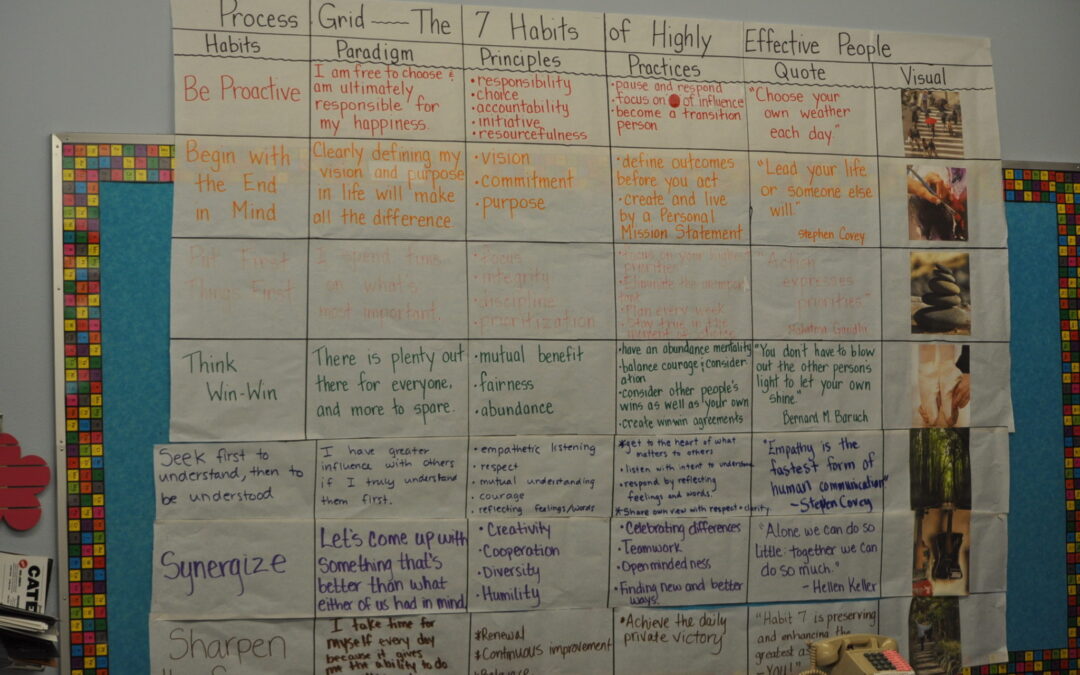 Process Grid — The 7 Habits of Highly Effective People
Habits
Paradigm
Principles
Practices
Quote
Visual
Be Proactive
I am free to choose &
am ultimately
responsible for
my happiness.
•responsibility
•choice
•accountability
•initiative
•resourcefulness
•pause and respond
•focus on of influence
•become a transition
person
"Choose your
own weather
each day."
Begin with
the End
in Mind
Clearly defining my
vision and purpose
in life will make
all the difference.
•vision
•commitment
•purpose
•define outcomes
before you act
•create and live
by a Personal
Mission Statement
"Lead your life
or someone else
will."
Stephen Covey
Put First
Things First
I spend time
on what's
most important.
•focus
•integrity
•discipline
•prioritization
•Focus on your highest
priorities
•Eliminate the unimpor
tant
•Plan every week
•Stay true in the
"Action
expresses
priorities."
Gandhi
Think
Win-Win
There is plenty out
there for everyone,
and more to spare.
•mutual benefit
•fairness
•abundance
•have an abundance mentality
•balance courage & consider
ation
•consider other people's
wins as well as your own
•create win-win agreements
"You don't have to blow
out the other persons
light to let your own
shine."
Bernard M. Baruch
Seek first to
understand, then to
be understood
I have greater
influence with others
if I truly understand
them first.
• empathetic listening
• respect
• mutual understanding
• courage
• reflecting feelings/words
*get to the heart of what
matters to others
• listen with intent to understand
• respond by reflecting
feelings and words.
*Share own view with respect + clarity
"Empathy is the
fastest form of
human communication"
-Stephen Covey
Synergize
Let's come up with
something that's
better than what
either of us had in mind
•Creativity
•Cooperation
•Diversity
•Humility
•Celebrating differences
•Teamwork
•Openmindedness
•Finding new and better
ways!
"Alone we can do so
little: together we can
do so much."
- Hellen Keller
Sharpen
I take time for
myself every day
because it gives
me the ability to do
*Renewal
*Continuous improvement
•Achieve the daily
private victory
"Habit 7 is preserving
and enhancing the
greatest
You!"
CATE